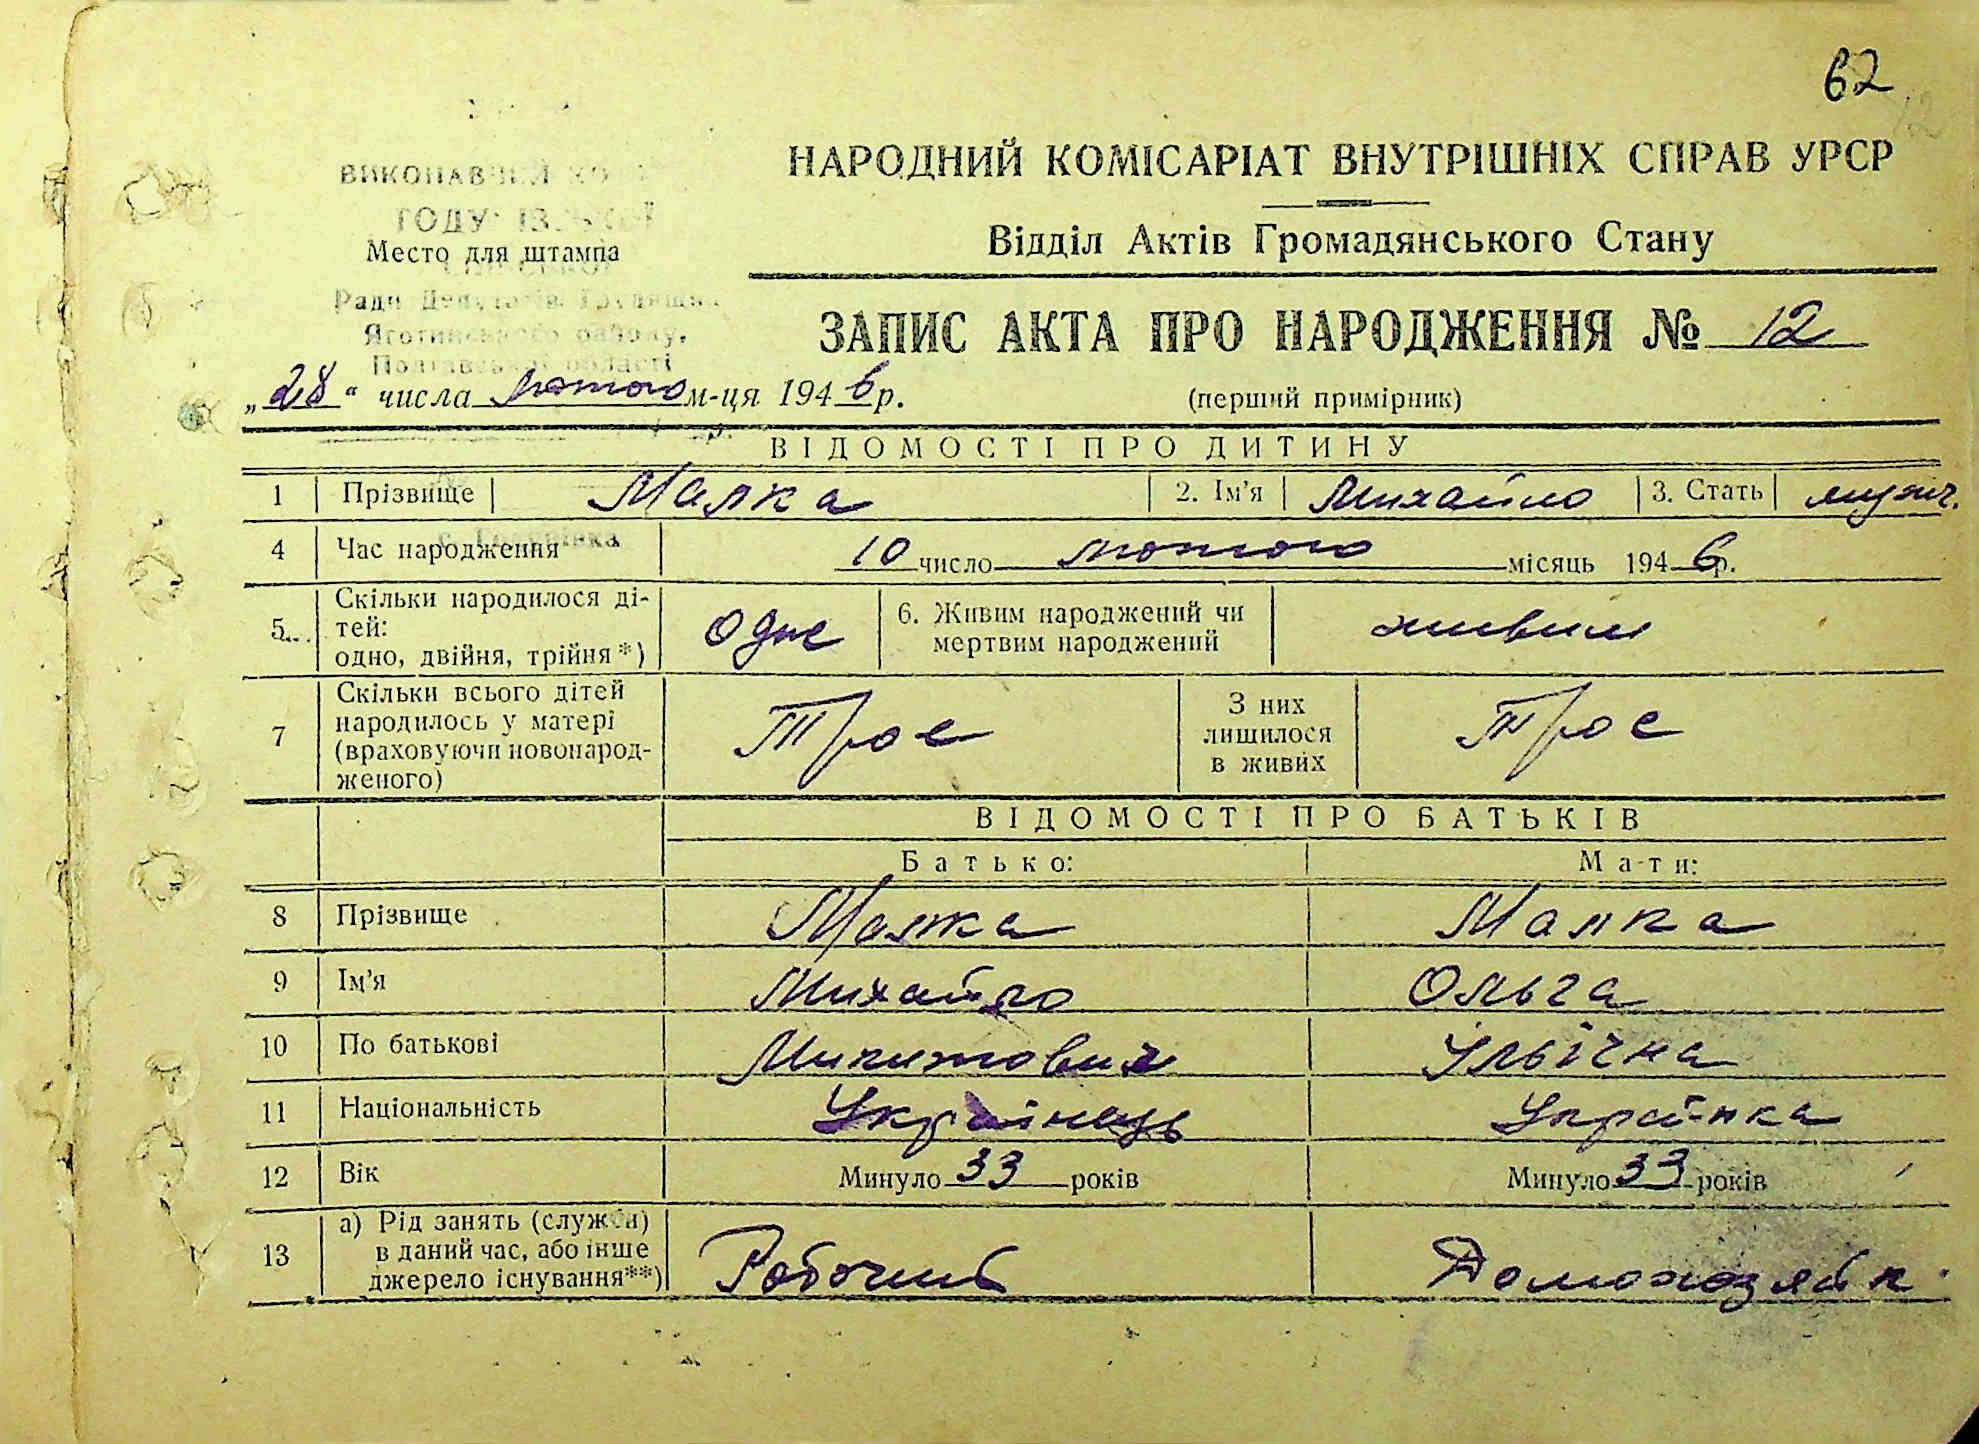 62
НАРОДНИЙ КОМІСАРІАТ ВНУТРІШНІХ СПРАВ УРСР
Відділ Актів Громадянського Стану
Место для штампа
Ради Депутатів Трудящих
Яготинського району,
Полтавської області
ЗАПИС АКТА ПРО НАРОДЖЕННЯ № 12
„28“ числа лютого м-ця 1946 р.
(перший примірник)
ВІДОМОСТІ ПРО ДИТИНУ
1 Прізвище Малка 2. Ім’я Михайло 3. Стать мужч.
4 Час народження 10 число лютого місяць 1946 р.
5 Скільки народилося ді-
тей:
одно, двійня, трійня*) Одне
6. Живим народжений чи
мертвим народжений живим
7 Скільки всього дітей
народилось у матері
(враховуючи новонарод-
женого) Троє
З них
лишилося
в живих Троє
ВІДОМОСТІ ПРО БАТЬКІВ
Батько: Мати:
8 Прізвище Малка Малка
9 Ім’я Михайло Ольга
10 По батькові Микитович Ільїчна
11 Національність Українець Українка
12 Вік Минуло 33 років Минуло 33 років
13 а) Рід занять (служби)
в даний час, або інше
джерело існування**) Робочий Домохозяйк.